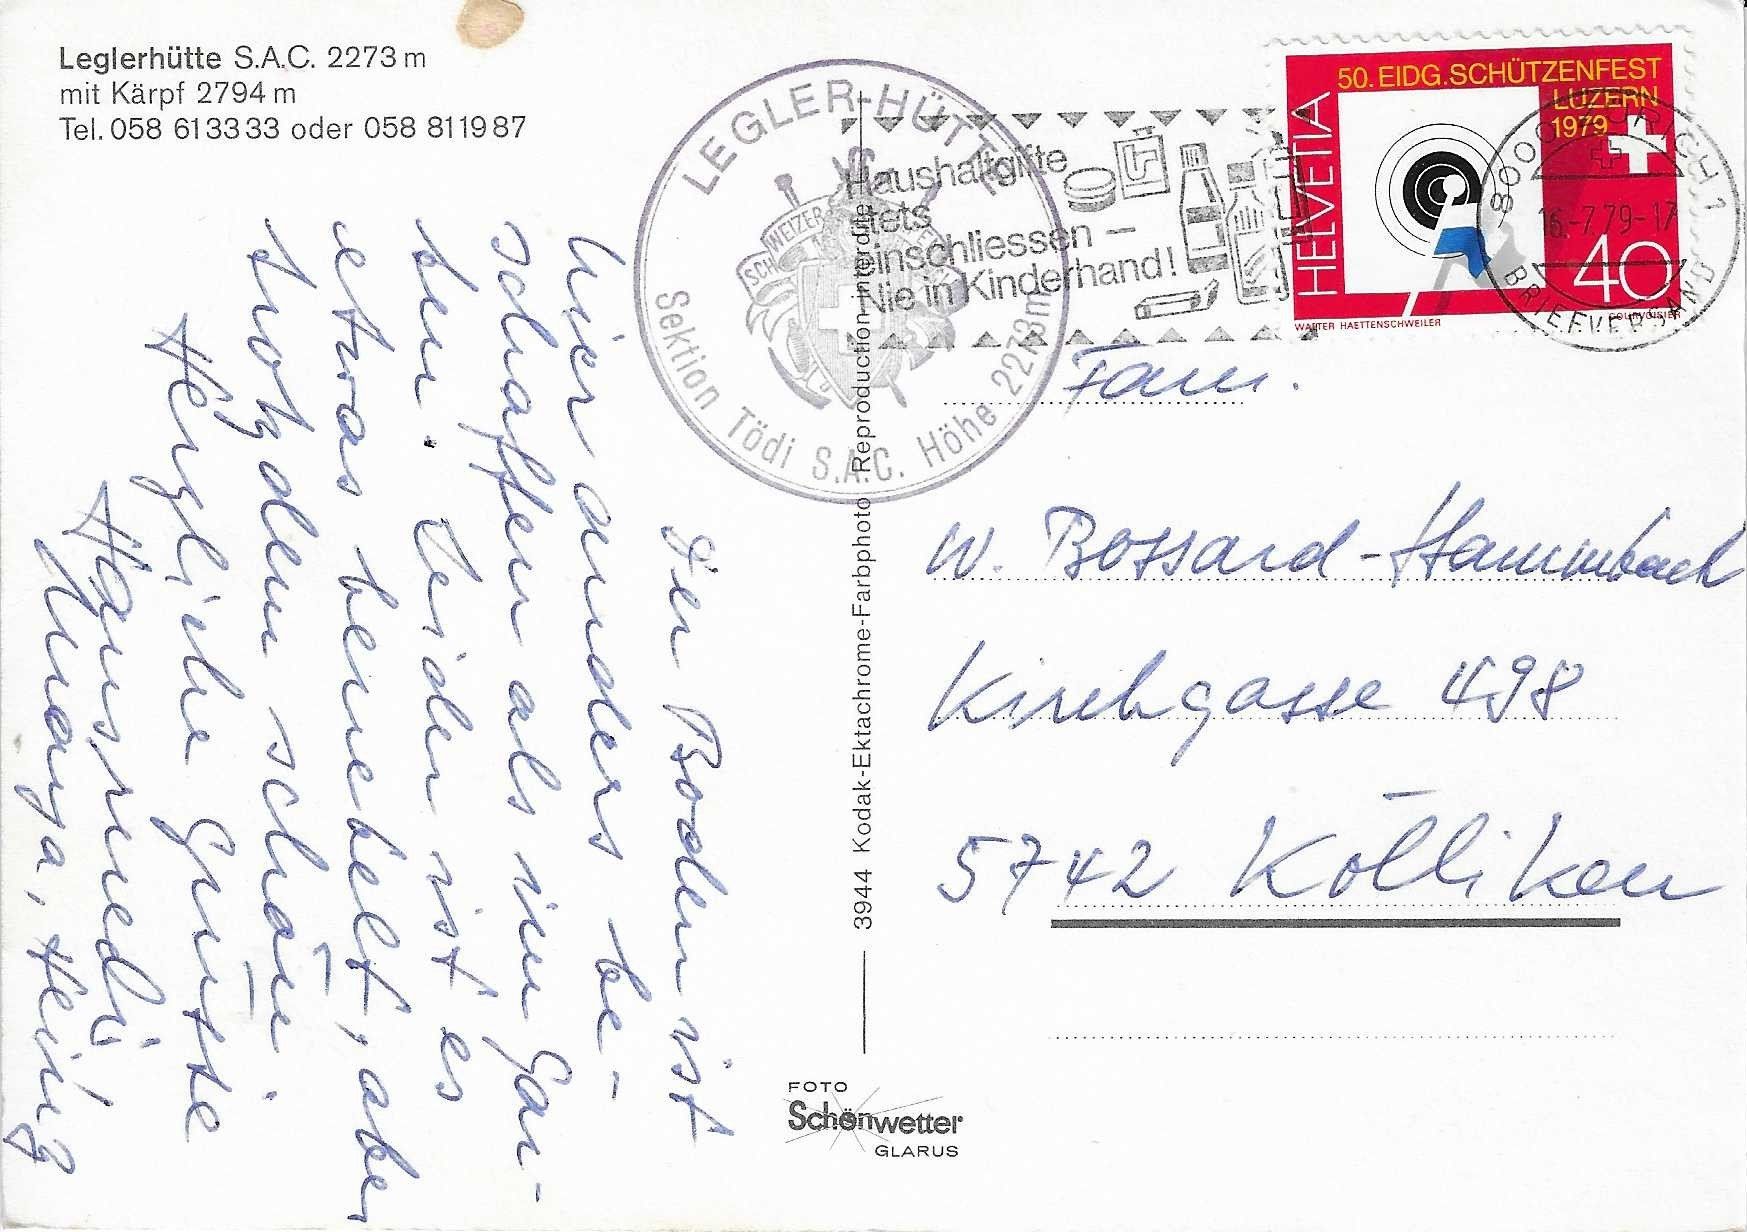 Leglerhütte S.A.C. 2273 m
mit Kärpf 2794 m
Tel. 058 61 33 33 oder 058 81 19 87
LEGLER-HÜTTE
SCHWEIZER
Sektion Tödi S.A.C. Höhe 2273m
Haushaltgifte
stets
einschliessen –
Nie in Kinderhand!
50. EIDG. SCHÜTZENFEST
LUZERN
1979
HELVETIA
40
WALTER HAETTENSCHWEILER
COURVOISIER
8000 ZÜRICH 1
16.-7.79-17
BRIEFVERSAND
Der Boden ist
hier anders be-
schaffen als im Gar-
ten. Leider ist es
etwas benebelt, aber
trotzdem schön.
Herzliche Grüsse
Hansruedi
Marya, Heinz
3944 Kodak-Ektachrome-Farbphoto Reproduction interdite
Fam.
W. Bossard-Hammbach
Kirchgasse 498
5742 Kölliken
FOTO
Schönwetter
GLARUS